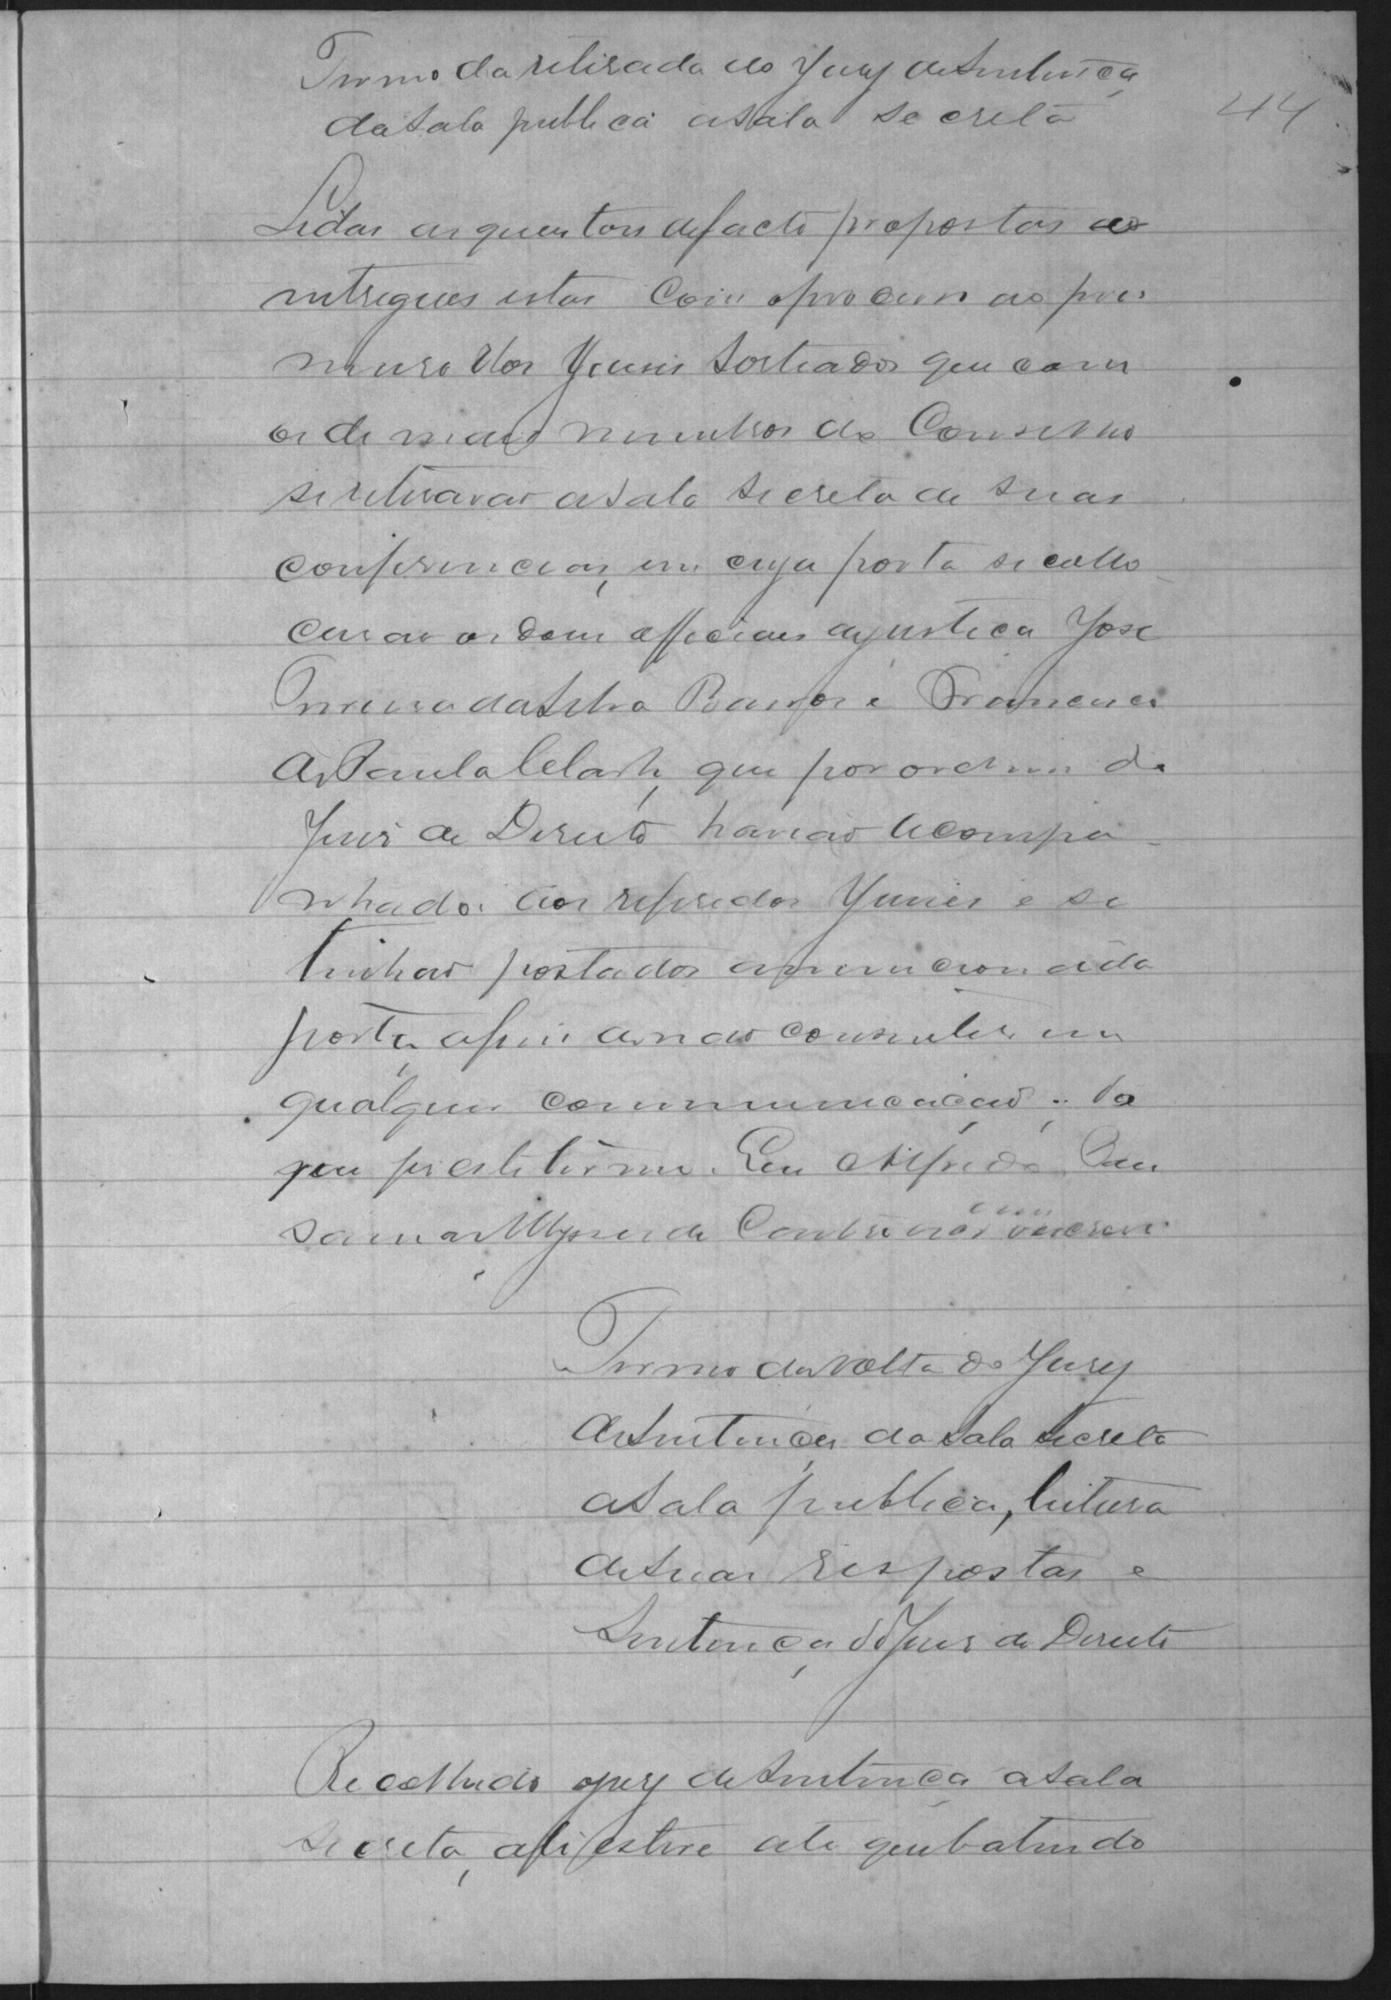 Termo da retirada do Jury de Sentença
da sala publica a sala secreta
44
Lidas as questoes de facto propostas e
entregues estas com o processo ao pri
meiro dos Juises sorteados que com
os demais membros do Conselho
se retirarao a sala secreta de suas
conferencias, em cuja porta se collo
carao os dous officiaes de justiça José
da Silva Barros e Francisco
de Paula que por ordem do
Juis de Direito haviao acompa
nhado aos referidos Juises e se
tinhao postados a mencionada
porta, afim de nao consentirem
qualquer communicaçao; do
que fiz este termo. Eu Alfredo
escrevi
Termo da volta do Jury
de Sentença da sala secreta
a sala publica, leitura
de suas respostas e
Sentença do Juis de Direito
Recolhido o jury de Sentença a sala
secreta, ali esteve até que batendo